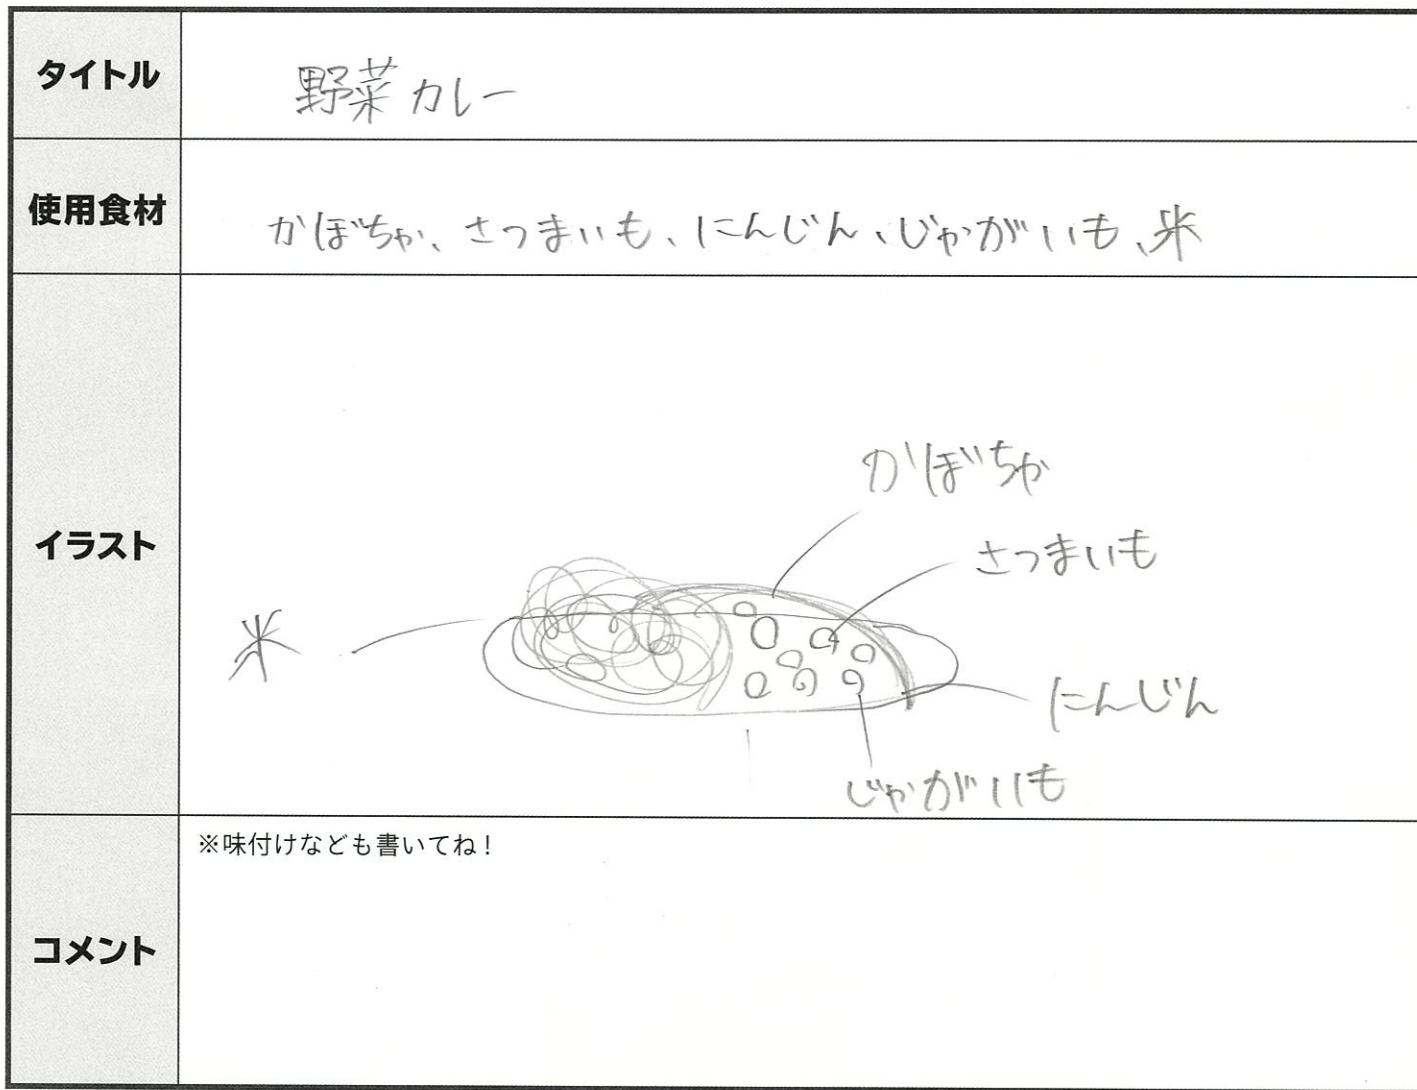 タイトル
野菜カレー
使用食材
かぼちゃ、さつまいも、にんじん、じゃがいも、米
イラスト
かぼちゃ
さつまいも
米
にんじん
じゃがいも
コメント
※味付けなども書いてね!